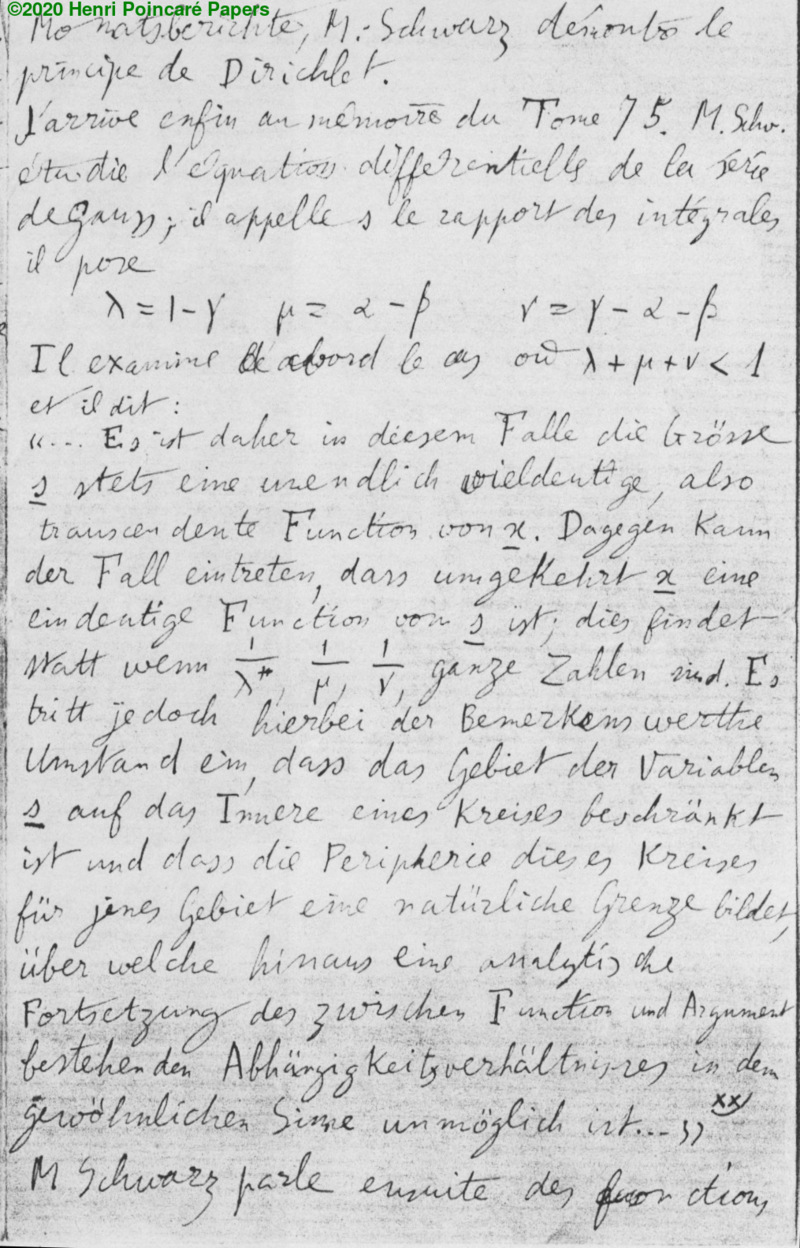 ©2020 Henri Poincaré Papers
Monatsberichte, M. Schwarz démontre le
principe de Dirichlet.
J'arrive enfin au mémoire du Tome 75. M. Schw.
étudie l'équation différentielle de la série
de Gauss; il appelle s le rapport des intégrales
il pose
λ = 1 - γ μ = α - β ν = γ - α - β
Il examine d'abord le cas où λ + μ + ν < 1
et il dit:
"... Es ist daher in diesem Falle die Grösse
s stets eine unendlich vieldeutige, also
transcendente Function von x. Dagegen Kann
der Fall eintreten, dass umgeKehrt x eine
eindeutige Function von s ist; dies findet
statt wenn 1/λ, 1/μ, 1/ν, ganze Zahlen sind. Es
tritt jedoch hierbei der BemerKenswerthe
Umstand ein, dass das Gebiet der Variablen
s auf das Innere eines Kreises beschränKt
ist und dass die Peripherie dieses Kreises
für jenes Gebiet eine natürliche Grenze bildet,
über welche hinaus eine analytische
Fortsetzung des zwischen Function und Argument
bestehenden AbhängigKeitsverhältnisses in dem
gewöhnlichen Sinne unmöglich ist... » xx)
M Schwarz parle ensuite des fonctions